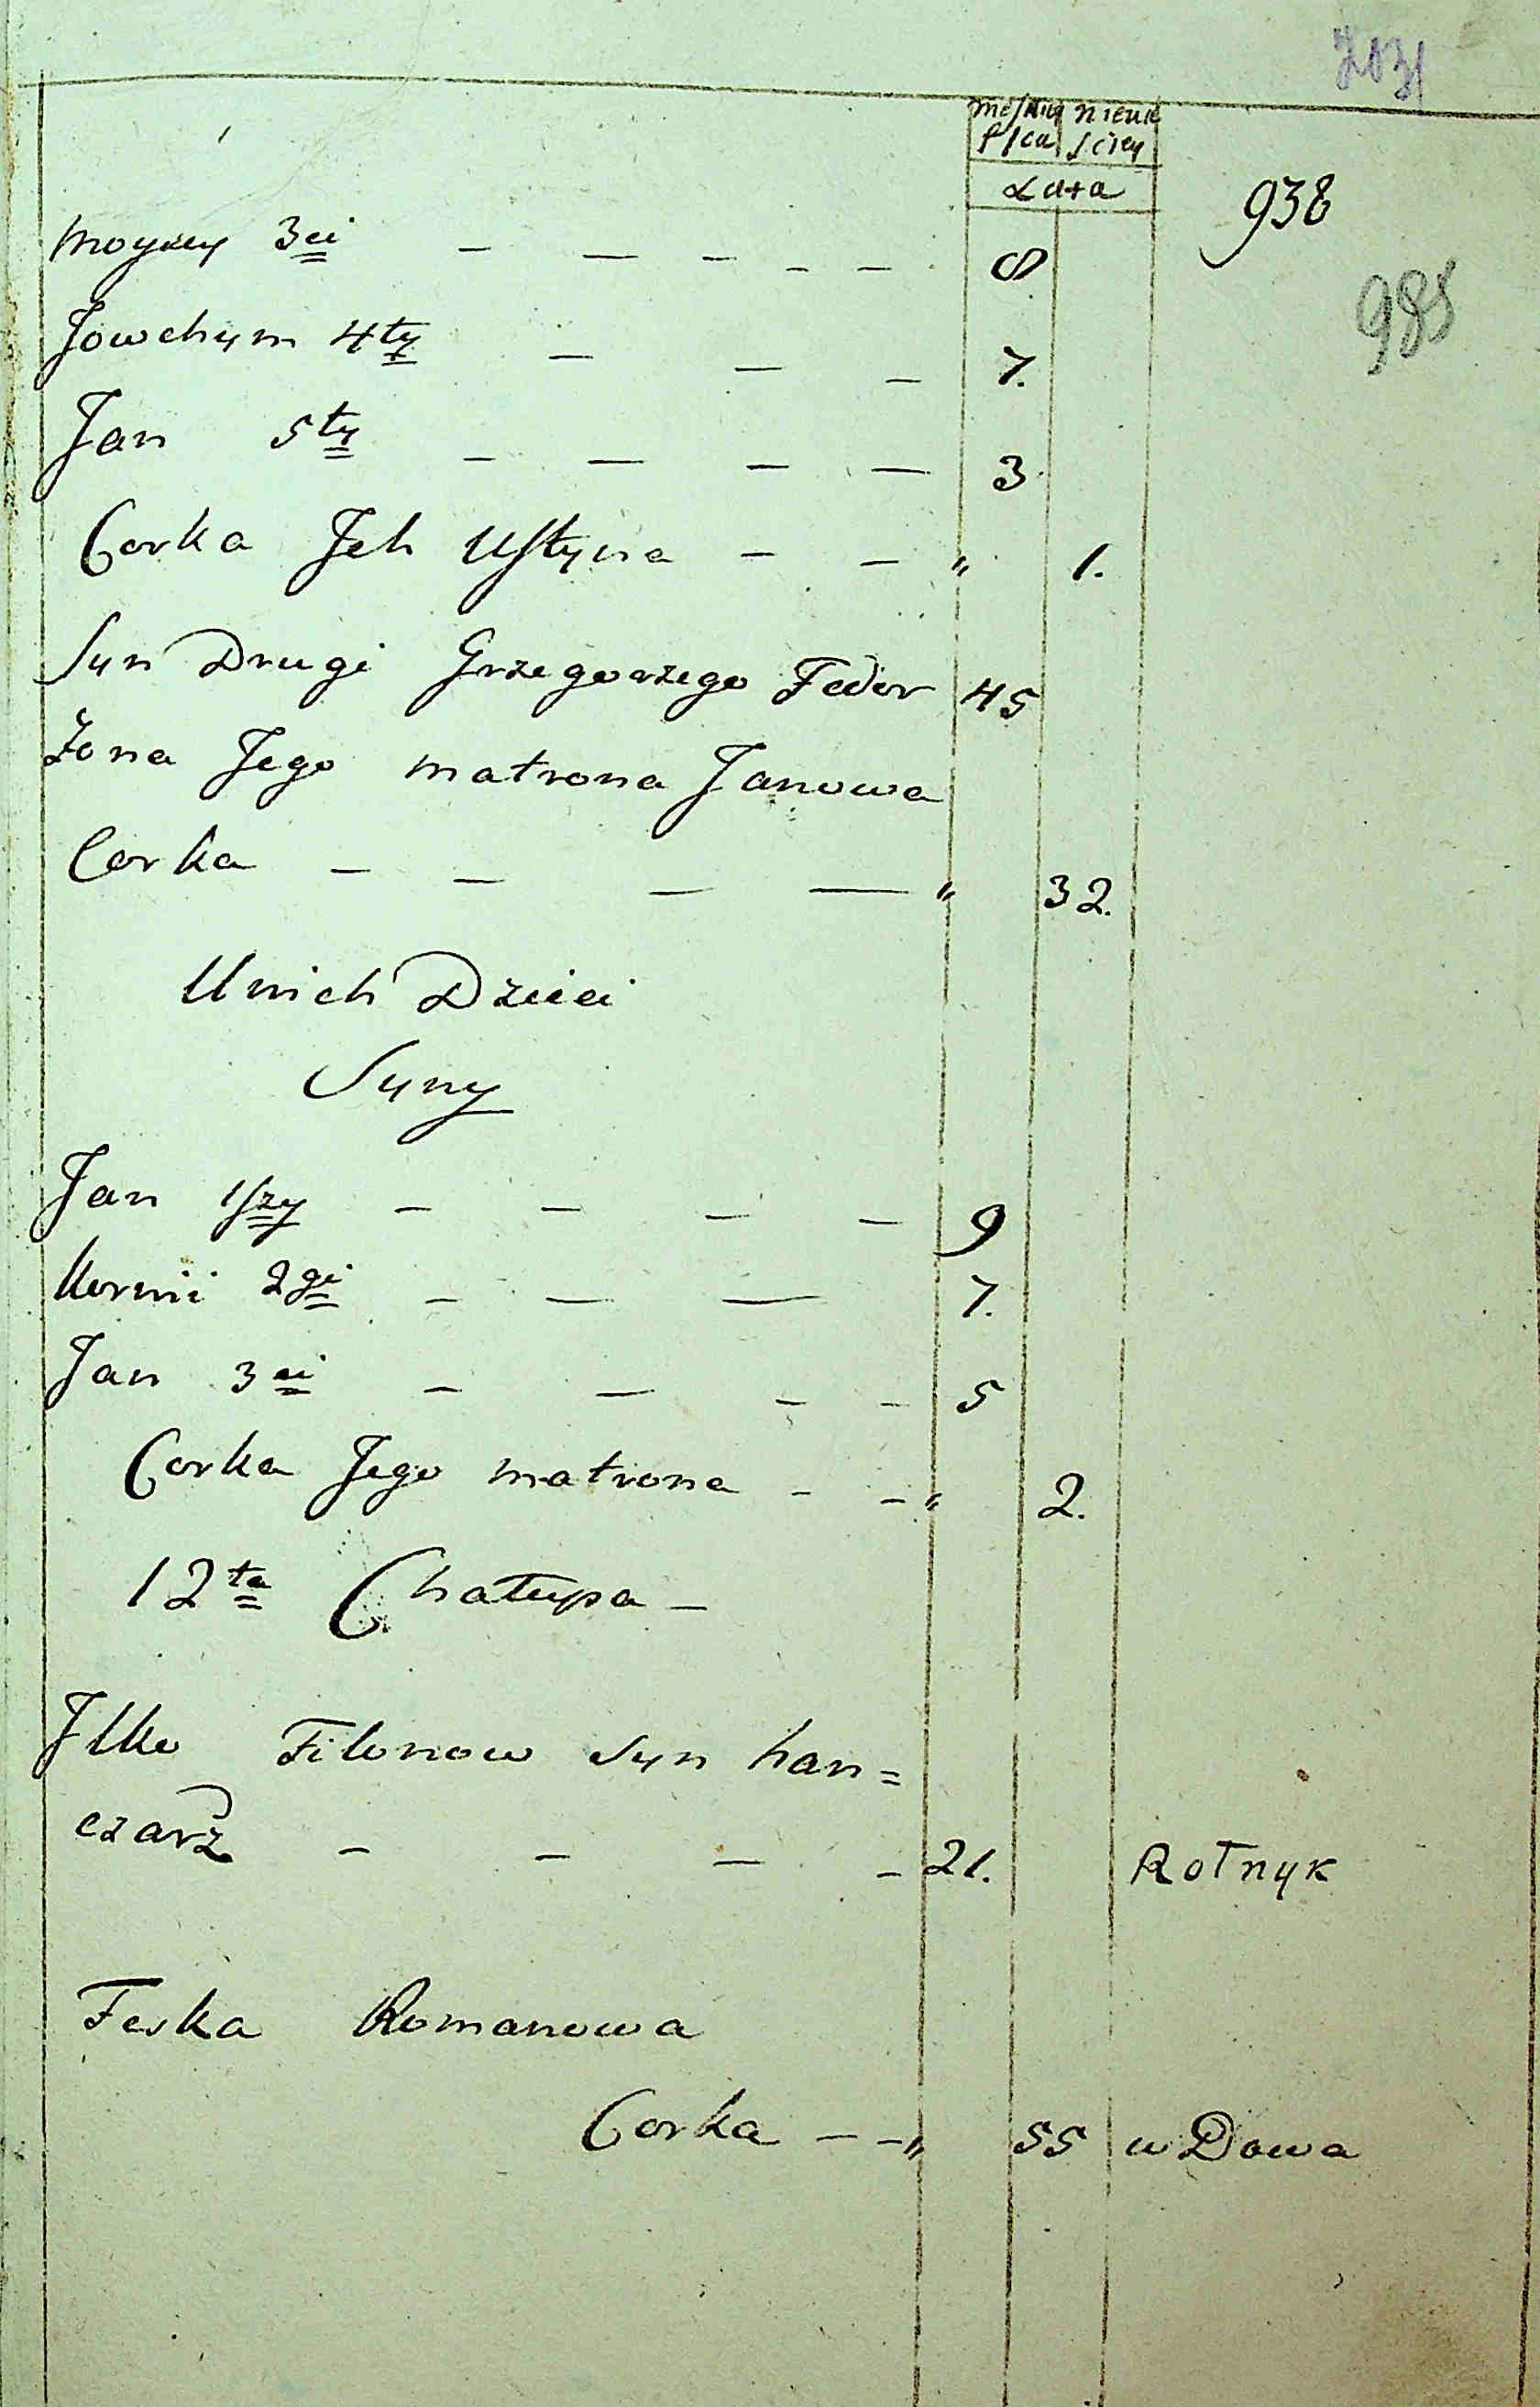 męſkiey niewie
płca ſciey
Lata
938
985
Moyzey 3ci — — — — — 8
Jowchym 4ty — — — 7.
Jan 5ty — — — — 3
Corka Jch Uſtyna — — " 1.
Syn Drugi Grzegorzego Fedor 45
Żona Jego Matrona Janowa
Corka — — — — " 32.
U nich Dzieci
Syny
Jan 1ſzy — — — — 9
Kornii 2gi — — — 7.
Jan 3ci — — — — 5
Corka Jego Matrona — — " 2.
12ta Chałupa —
Jlko Filonow Syn han=
czarz — — — — 21. Rolnyk
Feska Romanowa
Corka — — " 55 wDowa